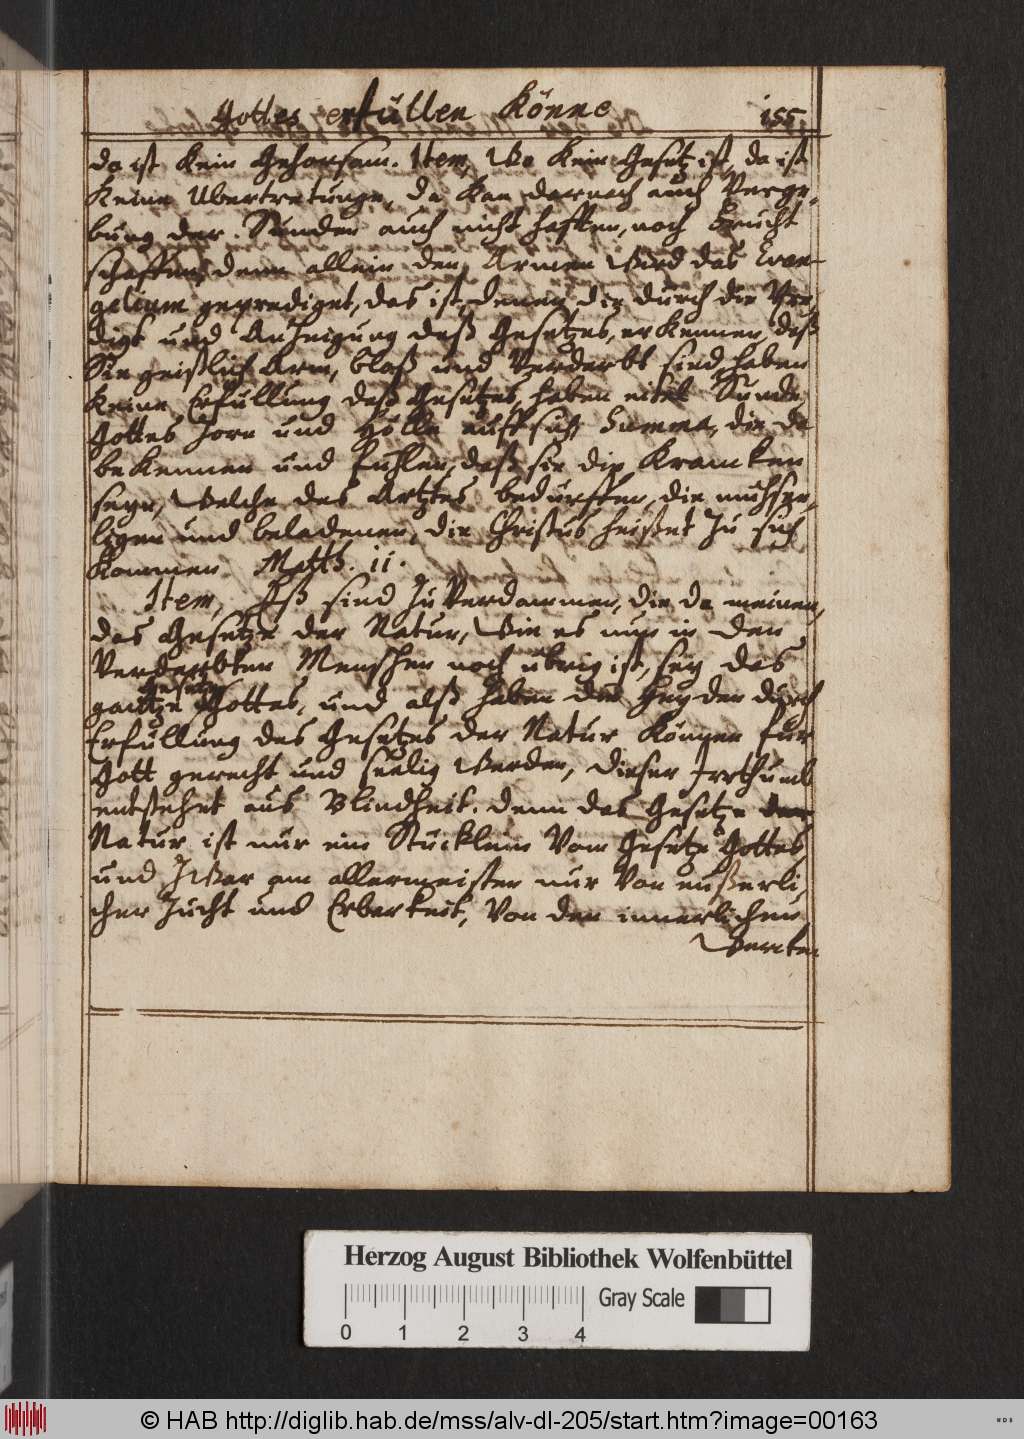 Gottes erfüllen Könne 155.
da ist kein Gehorsam. Item, Wo kein Gesetz ist, da ist
keine Ubertretunge, da kan darnach auch Verge-
bung der Sünden auch nicht hafften, noch frucht
schaffen, denn allein den Armen Wird das Evan-
gelium geprediget, das ist, denen, die durch die Pre-
digt und Anzeigung deß Gesetzes, erkennen, daß
Sie geistlich Arm, bloß und Verderbt sind, haben
keine Erfüllung deß Gesetzes, haben eitel Sunde,
Gottes Zorn und Hölle auff sich, Summa, die da
bekennen und fuhlen, daß sie die Krancken
seyn, Welche des Artztes bedurffen, die muhse-
ligen und beladenen, die Christus heißet Zu sich
kommen Matth. 11.
Item, Eß sind Zu Verdammen, die da meinen,
das Gesetze der Natur, Wie es nun in den
Verderbten Menschen noch ubrig ist, sey das
gantze Gesetze Gottes, und alß haben die Heyden durch
Erfüllung des Gesetzes der Natur Können fur
Gott gerecht und seelig Werden, dieser Irrthumb
entstehet aus Blindheit. denn das Gesetze der
Natur ist nur ein Stücklein Vom Gesetze Gottes,
und Zwar am allermeisten nur Von eußerli-
cher Zucht und Erbarkeit, Von den innerlichen
Wercken
Herzog August Bibliothek Wolfenbüttel
Gray Scale
0 1 2 3 4
© HAB http://diglib.hab.de/mss/alv-dl-205/start.htm?image=00163